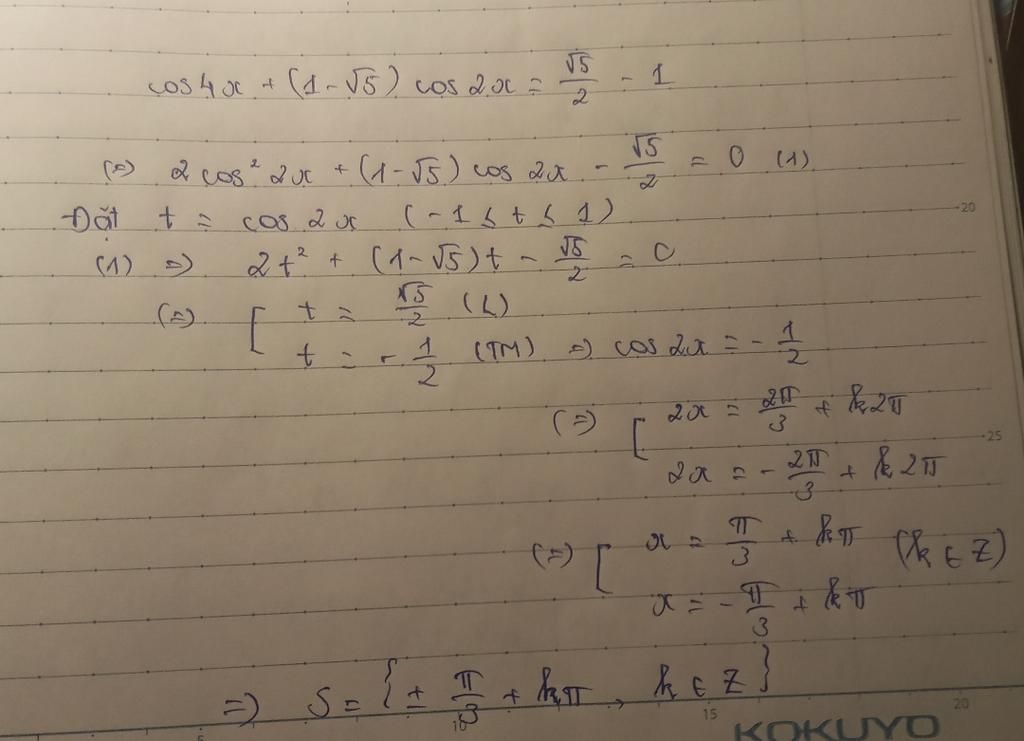 cos4x + (1-√5) cos2x = √5/2 - 1
(=) 2cos² 2x + (1-√5) cos 2x - √5/2 = 0 (1)
Đặt t = cos 2x (-1 ≤ t ≤ 1)
(1) => 2t² + (1-√5)t - √5/2 = 0
(=) [ t = √5/2 (L)
t = -1/2 (TM) => cos2x = -1/2
(=) [ 2x = 2π/3 + k2π
2x = -2π/3 + k2π
(=) [ x = π/3 + kπ (k ∈ Z)
x = -π/3 + kπ
=> S = {± π/3 + kπ, k ∈ Z}
20
25
5 10 15 20
KOKUYO